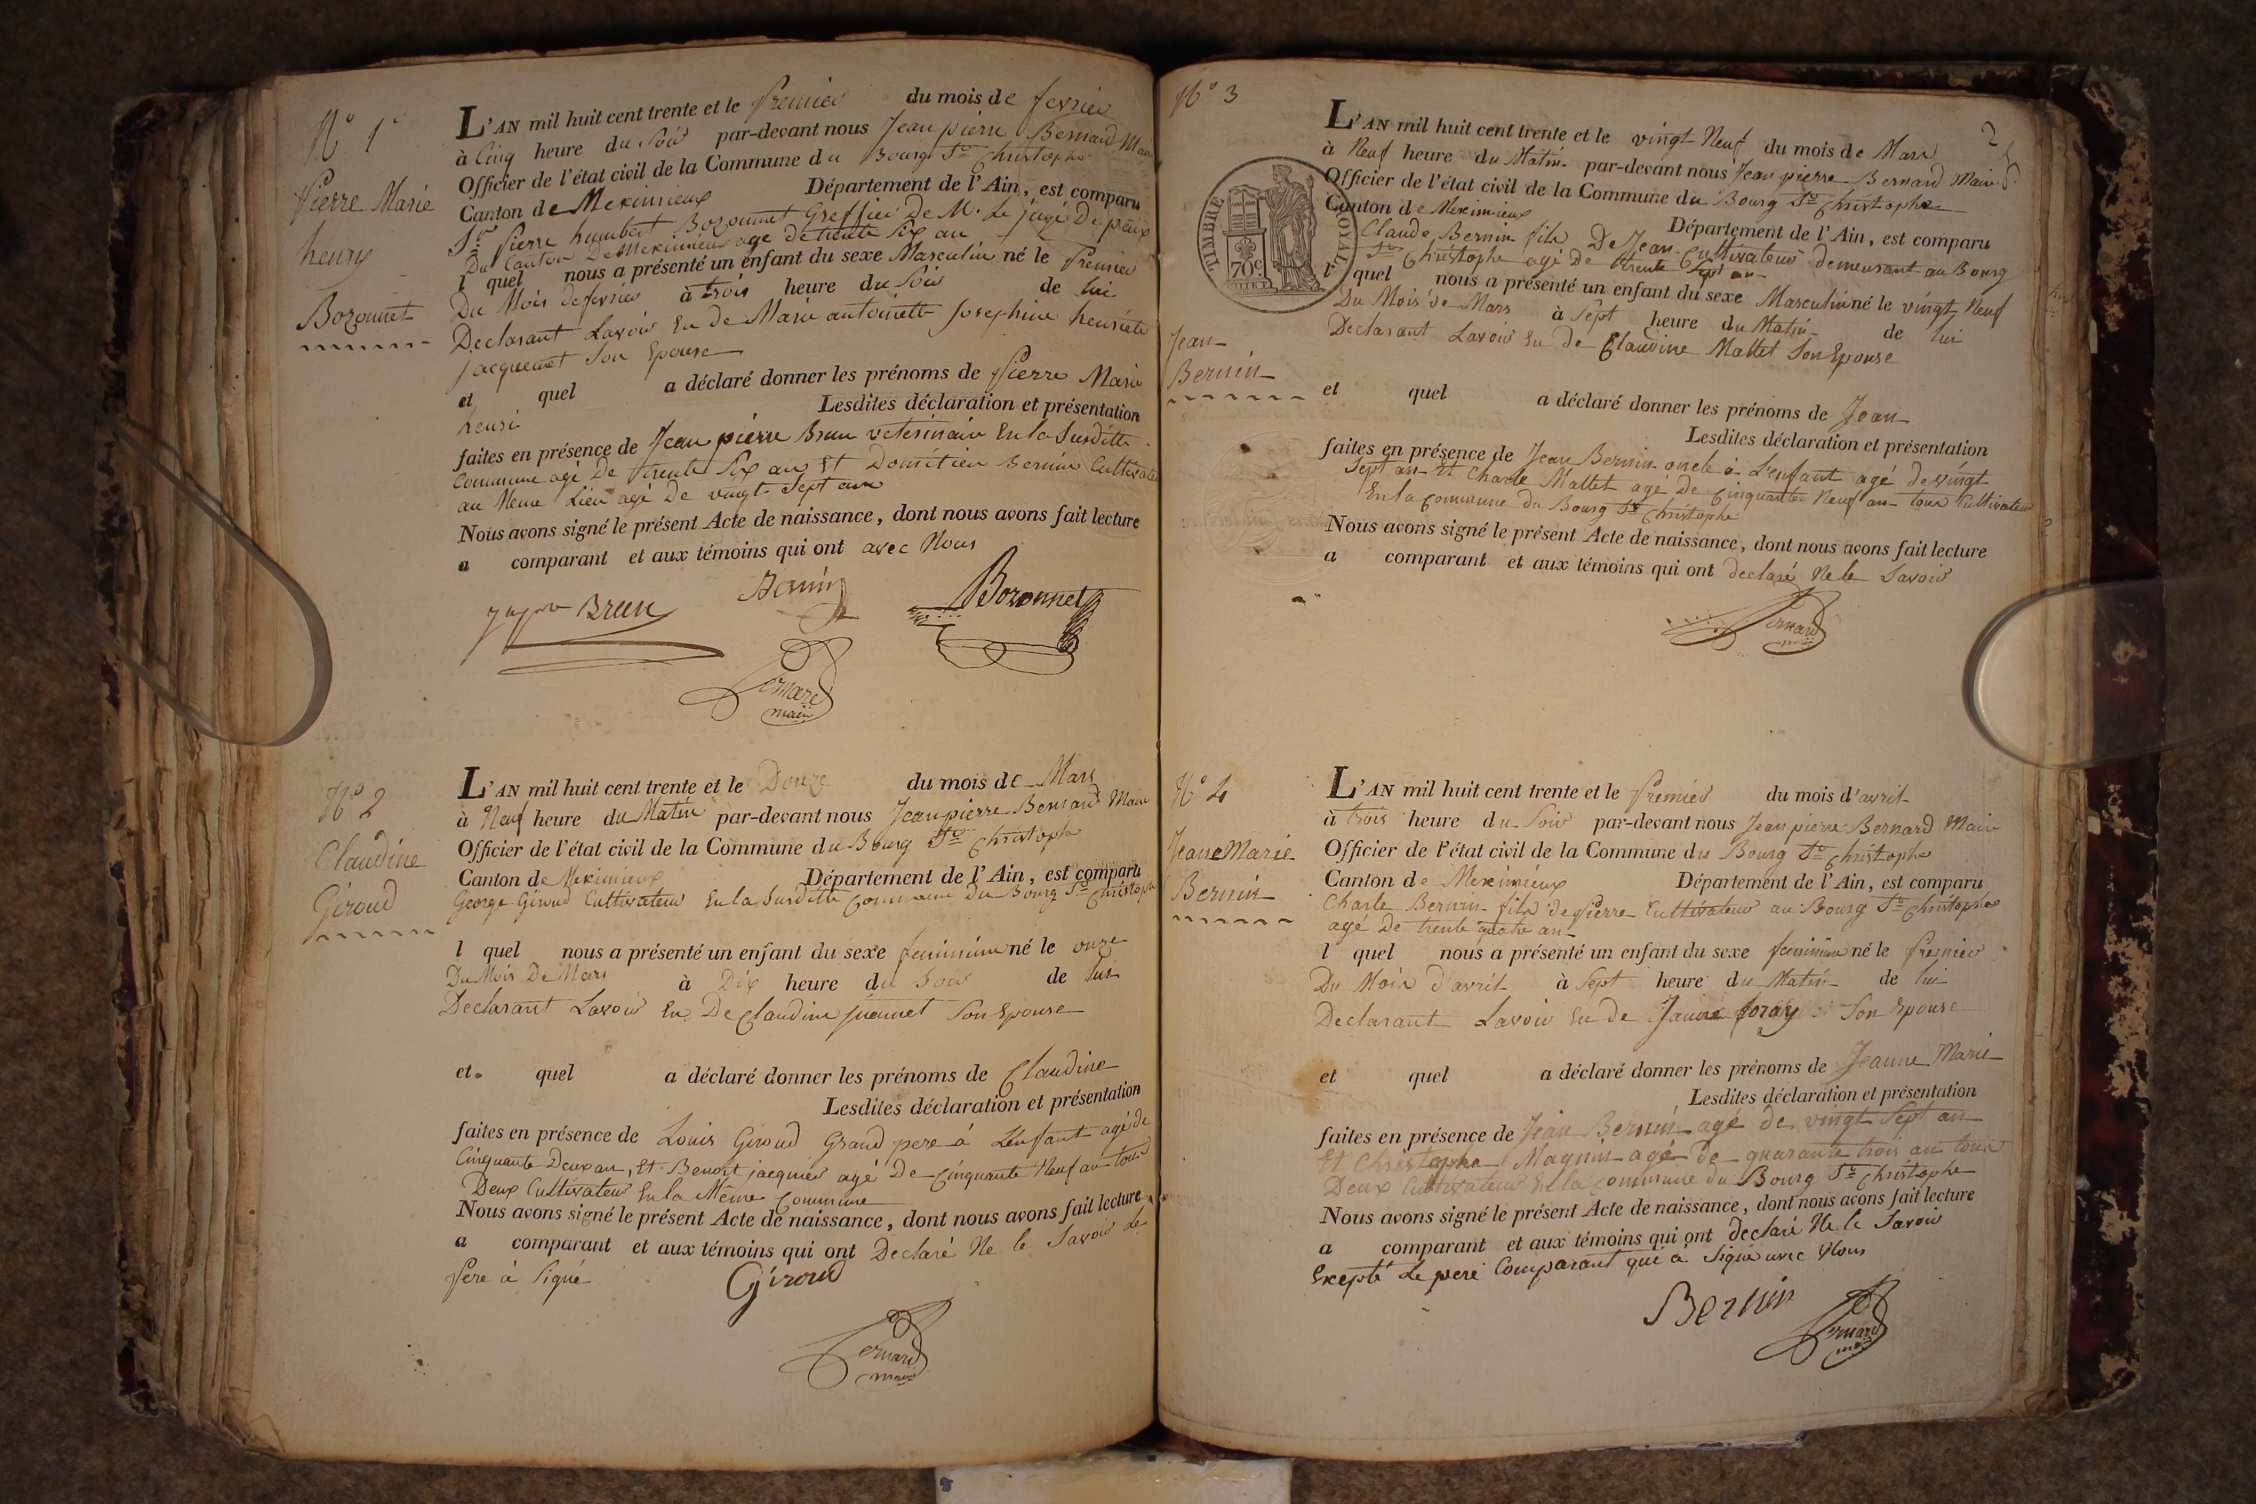 N° 1er
Pierre Marie
henry
Bozonnet
L'AN mil huit cent trente et le Premier du mois de fevrier
à Cinq heure du Soir par-devant nous Jean pierre Bernard Maire
Officier de l'état civil de la Commune du Bourg St Christophe
Canton de Meximieux Département de l'Ain, est comparu
Sr pierre humbert Bozonnet Greffier De Mr Le juge De paix
Du Canton De Meximieux age de trente Six an
l quel nous a présenté un enfant du sexe Masculin né le Premier
Du Mois de fevrier à trois heure du Soir de lui
Declarant Lavoir Eu de Marie antoinette Josephine henriete
jacquemet Son Epouse
et quel a déclaré donner les prénoms de Pierre Marie
henri Lesdites déclaration et présentation
faites en présence de Jean pierre Brun veterinaire En la Susditte
Commune agé De trente Six an Et Domitien Bernin Cultivateur
au Meme Lieu agé De vingt Sept an
Nous avons signé le présent Acte de naissance, dont nous avons fait lecture
a comparant et aux témoins qui ont avec Nous
Brun
Bernin
Bozonnet
Bernard
maire
N° 2
Claudine
Giroud
L'AN mil huit cent trente et le Douze du mois de Mars
à Neuf heure du Matin par-devant nous Jean pierre Bernard Maire
Officier de l'état civil de la Commune du Bourg St Christophe
Canton de Meximieux Département de l'Ain, est comparu
George Giroud Cultivateur En la Susditte Commune Du Bourg St Christophe
l quel nous a présenté un enfant du sexe feminin né le onze
Du Mois De Mars à Dix heure du Soir de lui
Declarant Lavoir Eu De Claudine Son Epouse
et quel a déclaré donner les prénoms de Claudine
Lesdites déclaration et présentation
faites en présence de Louis Giroud Grand pere à L'enfant agé de
Cinquante Deux an, Et Benoit jacquier agé De Cinquante Neuf an tous
Deux Cultivateur En la Même Commune
Nous avons signé le présent Acte de naissance, dont nous avons fait lecture
a comparant et aux témoins qui ont Declaré Ne le Savoir Le
Pere à Signé
Giroud
Bernard
maire
N° 3
2
TIMBRE ROYAL
70c
Jean
Bernin
L'AN mil huit cent trente et le vingt Neuf du mois de Mars
à Neuf heure du Matin par-devant nous Jean pierre Bernard Maire
Officier de l'état civil de la Commune du Bourg St Christophe
Canton de Meximieux Département de l'Ain, est comparu
Claude Bernin fils De Jean Cultivateur demeurant au Bourg
St Christophe agé De trente an
l quel nous a présenté un enfant du sexe Masculin né le vingt Neuf
Du Mois de Mars à Sept heure du Matin de lui
Declarant Lavoir Eu de Claudine Mallet Son Epouse
et quel a déclaré donner les prénoms de Jean
Lesdites déclaration et présentation
faites en présence de Jean Bernin oncle à L'enfant agé de vingt
Sept an Et Charle Mallet agé De Cinquante Neuf an tous Cultivateur
En la Commune du Bourg St Christophe
Nous avons signé le présent Acte de naissance, dont nous avons fait lecture
a comparant et aux témoins qui ont declaré Ne le Savoir
Bernard
maire
N° 4
Jeanne Marie
Bernin
L'AN mil huit cent trente et le Premier du mois d'avril
à trois heure du Soir par-devant nous Jean pierre Bernard Maire
Officier de l'état civil de la Commune du Bourg St Christophe
Canton de Meximieux Département de l'Ain, est comparu
Charle Bernin fils de Pierre Cultivateur au Bourg St Christophe
agé De trente quatre an
l quel nous a présenté un enfant du sexe feminin né le Premier
Du Mois d'avril à Sept heure du Matin de lui
Declarant Lavoir Eu de Janne foray Son Epouse
et quel a déclaré donner les prénoms de Jeanne Marie
Lesdites déclaration et présentation
faites en présence de Jean Bernin agé de vingt Sept an
Et Christophe Magnin agé de quarante trois an tous
Deux Cultivateur En la Commune du Bourg St Christophe
Nous avons signé le présent Acte de naissance, dont nous avons fait lecture
a comparant et aux témoins qui ont declaré Ne le Savoir
Excepté Le pere Comparant qui à Signé avec Nous
Bernin
Bernard
maire